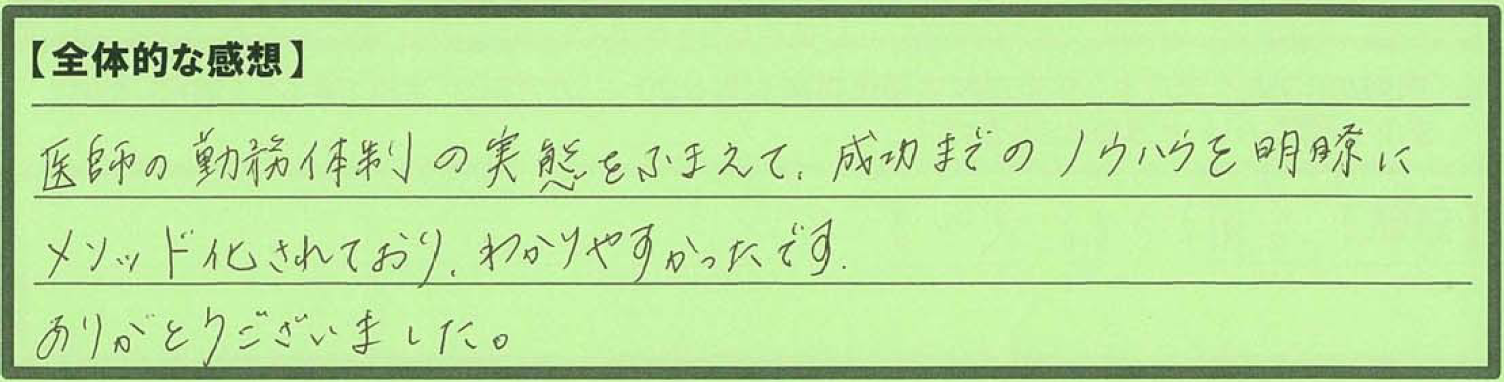 【全体的な感想】
医師の勤務体制の実態をふまえて、成功までのノウハウを明瞭に
メソッド化されており、わかりやすかったです.
ありがとうございました。